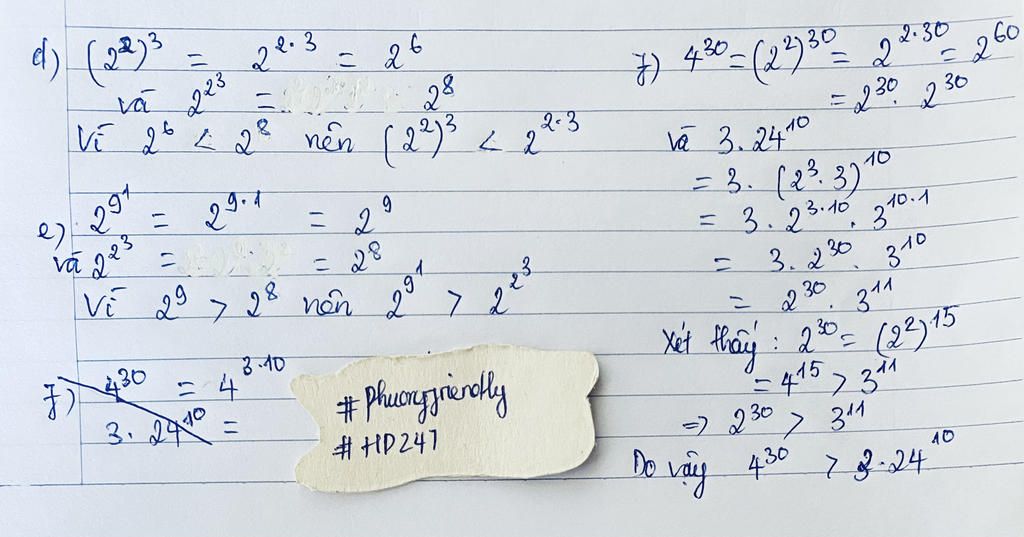 d) (2²)³ = 2^{2·3} = 2⁶
và 2^{2^3} = 2⁸
Vì 2⁶ < 2⁸ nên (2²)³ < 2^{2·3}
e) 2^{9^1} = 2^{9·1} = 2⁹
và 2^{2^3} = = 2⁸
Vì 2⁹ > 2⁸ nên 2^{9^1} > 2^{2^3}
f) 4³⁰ = 4^{3·10}
3. 24¹⁰ =
#Phuongfriendly
#HD247
f) 4³⁰ = (2²)³⁰ = 2^{2·30} = 2⁶⁰
= 2³⁰. 2³⁰
và 3.24¹⁰
= 3. (2³.3)¹⁰
= 3. 2^{3·10}. 3^{10·1}
= 3. 2³⁰. 3¹⁰
= 2³⁰. 3¹¹
Xét thấy: 2³⁰ = (2²)¹⁵
= 4¹⁵ > 3¹¹
⇒ 2³⁰ > 3¹¹
Do vậy 4³⁰ > 3.24¹⁰